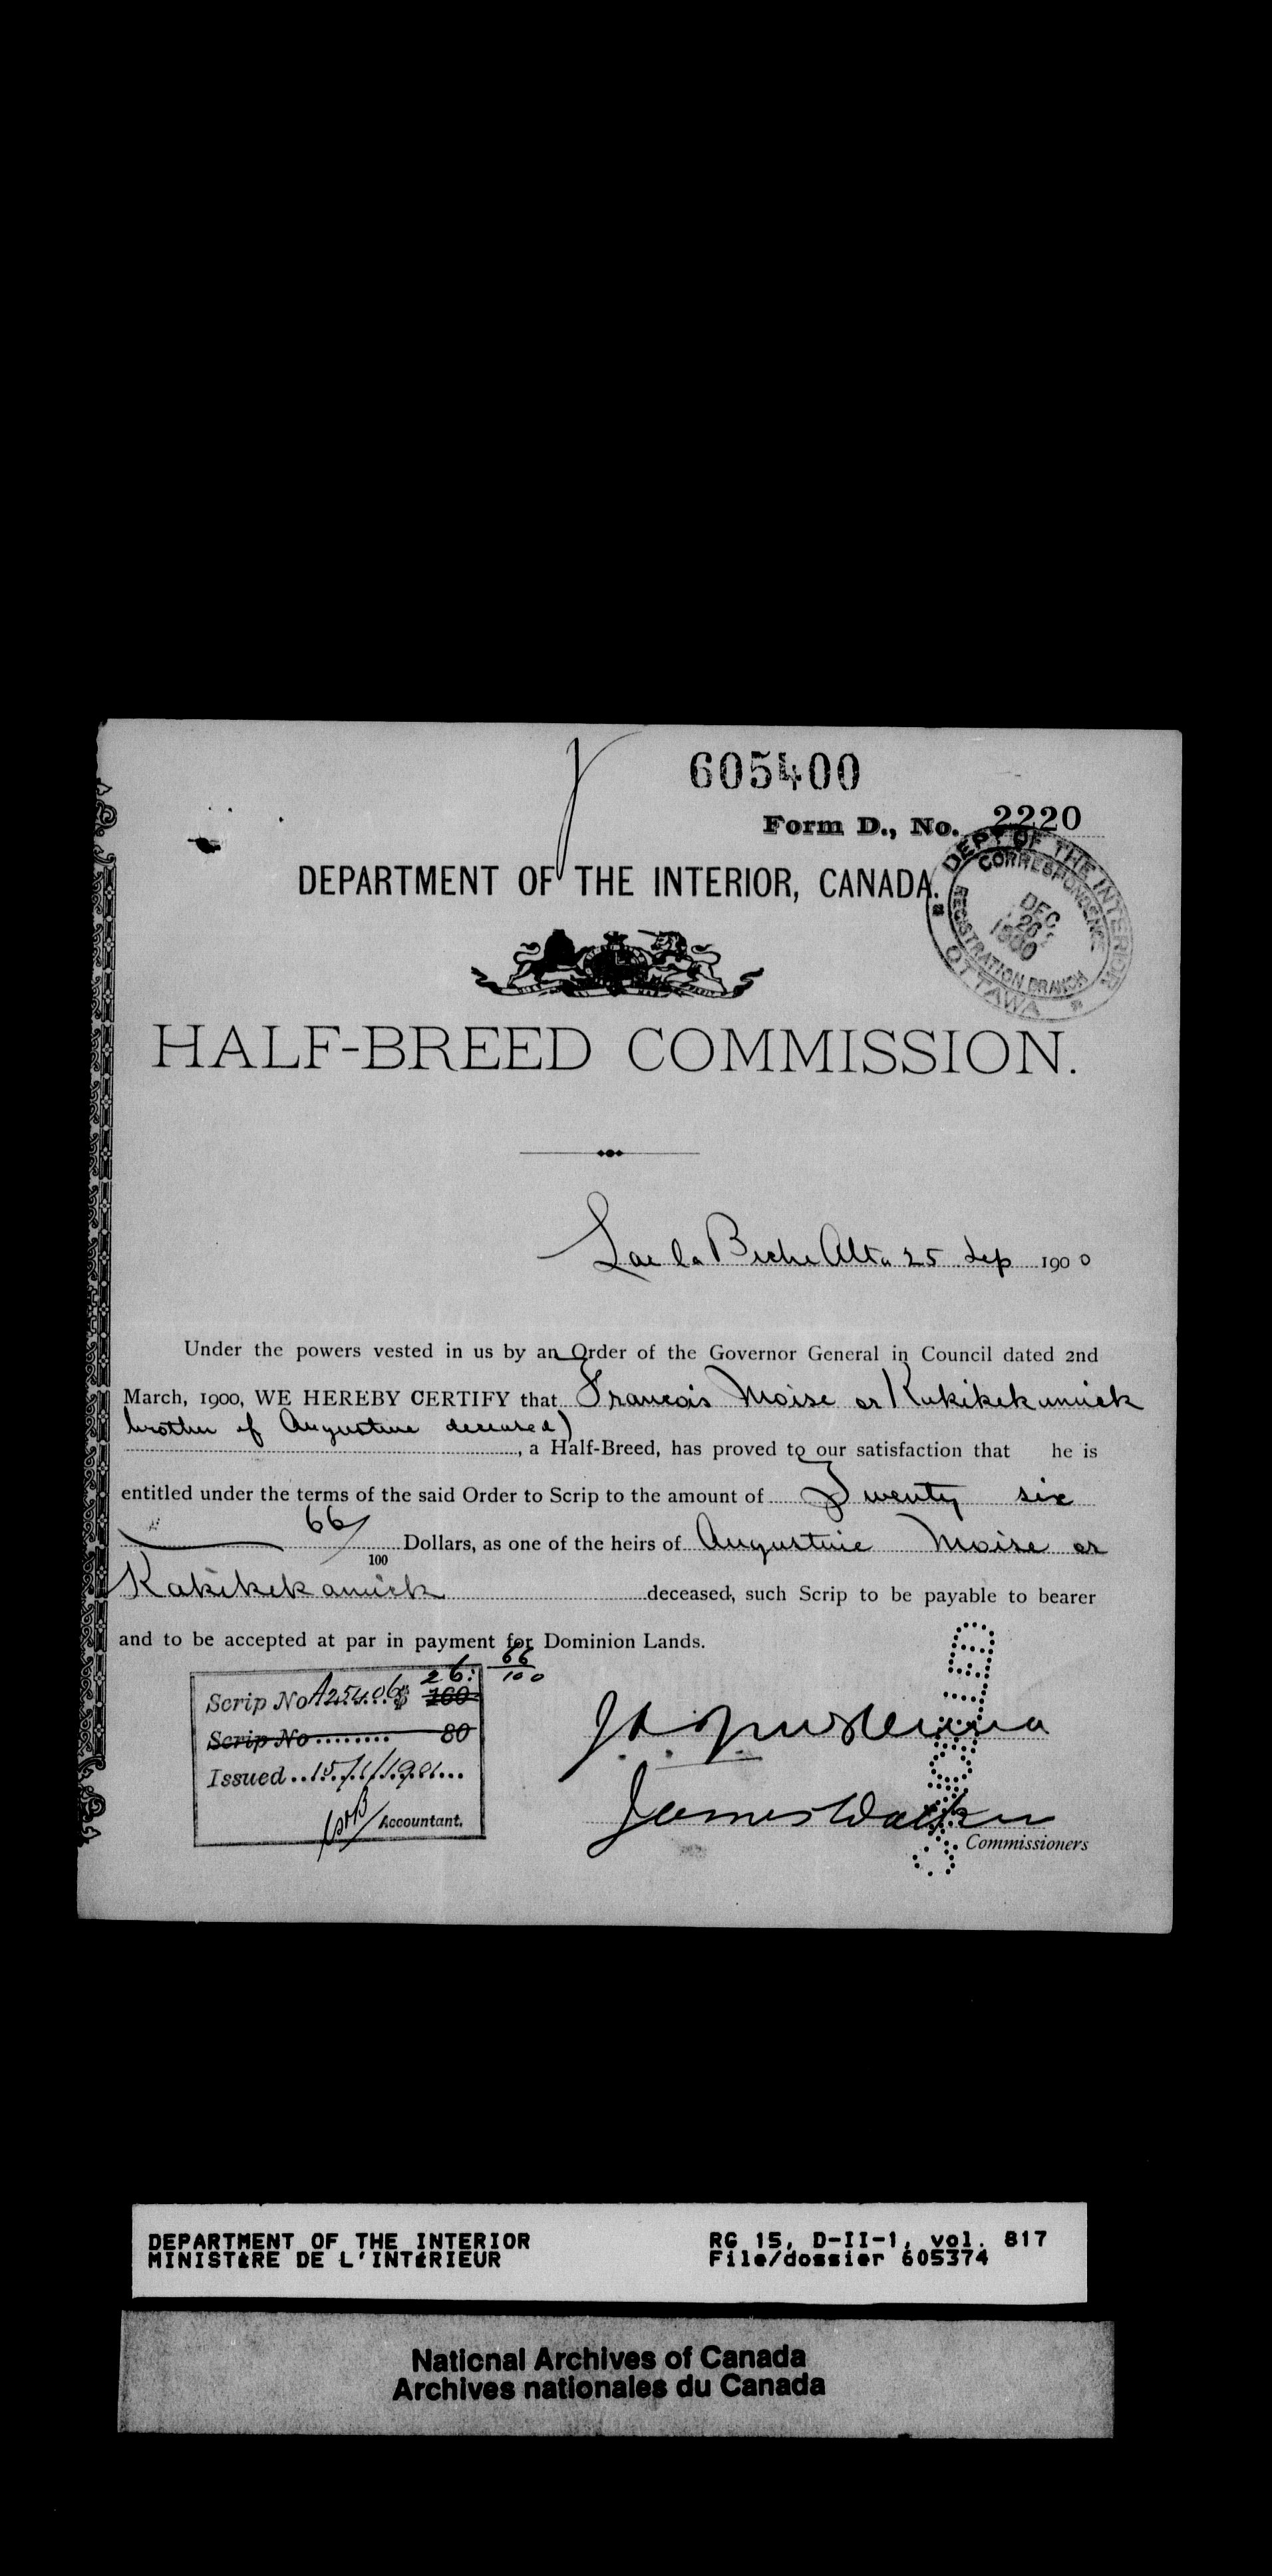 605400
Form D., No. 2220
DEPT OF THE INTERIOR
CORRESPONDENCE
DEC 26 1900
REGISTRATION BRANCH
OTTAWA
DEPARTMENT OF THE INTERIOR, CANADA.
HALF-BREED COMMISSION.
Lac la Biche Alta 25 Sep 1900
Under the powers vested in us by an Order of the Governor General in Council dated 2nd
March, 1900, WE HEREBY CERTIFY that Francois Moise or Kakikekamick
brother of Augustine deceased)
, a Half-Breed, has proved to our satisfaction that he is
entitled under the terms of the said Order to Scrip to the amount of Twenty six
66/100 Dollars, as one of the heirs of Augustine Moise or
Kakikekamick deceased, such Scrip to be payable to bearer
and to be accepted at par in payment for Dominion Lands.
26. 66/100
Scrip No A25406 $ 160
Scrip No ........ 80
Issued .. 15/1/1901 ...
Accountant.
James Walker
Commissioners
DEPARTMENT OF THE INTERIOR
MINISTÈRE DE L'INTÉRIEUR
RG 15, D-II-1, vol. 817
File/dossier 605374
National Archives of Canada
Archives nationales du Canada